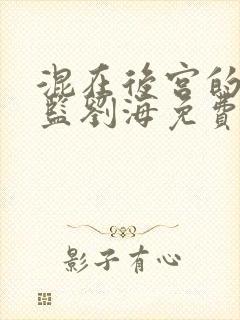 混在後宮的
藍劉海免費
影子有心